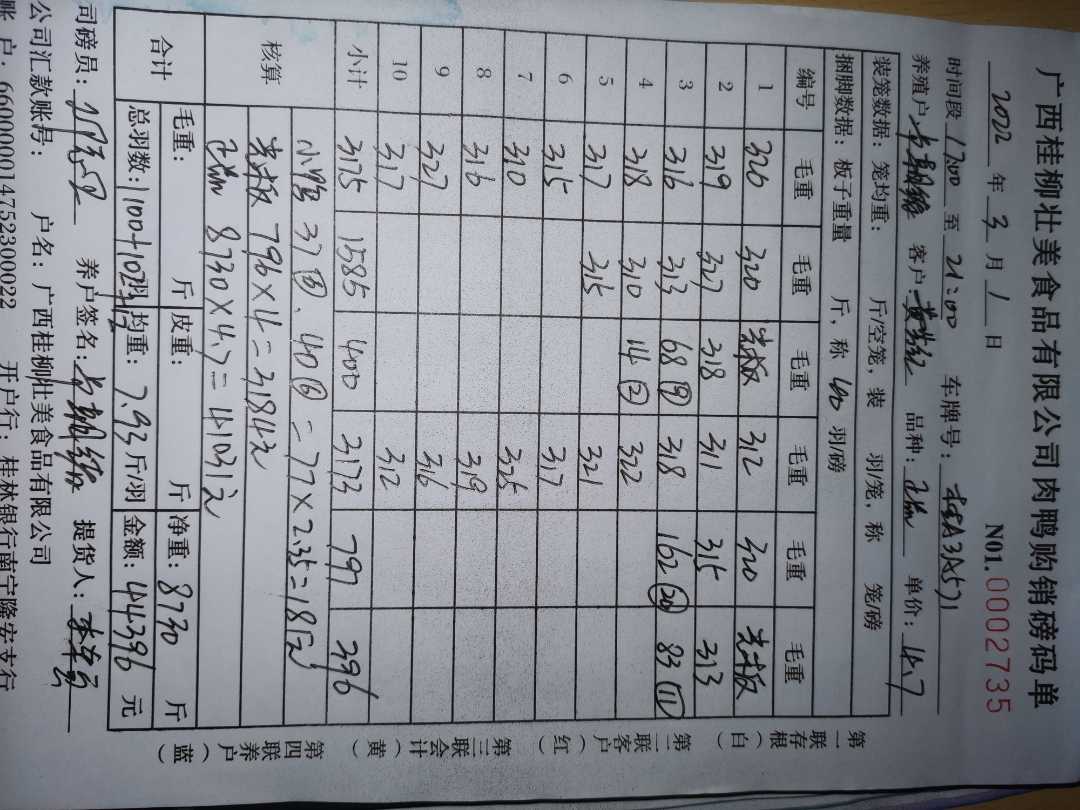 广西桂柳壮美食品有限公司肉鸭购销磅码单
2022 年 3 月 1 日 N01. 0002735
时间段 17:00 至 21:00 车牌号: 桂A3A571
养殖户: 客户: 品种: 单价: 4.7
装笼数据: 笼均重: 斤/空笼, 装 羽/笼, 称 笼/磅
捆脚数据: 板子重量 斤, 称 40 羽/磅
编号 毛重 毛重 毛重 毛重 毛重 毛重
1 320 320 光板 312 320 光板
2 319 327 318 311 315 313
3 316 313 68⑨ 318 162⑳ 83⑪
4 318 310 14② 322
5 317 315 321
6 315 317
7 310 325
8 316 319
9 327 316
10 317 312
小计 3175 1585 400 3173 797 396
核算 小鸭 37 、40 = 77×2.35=181元
光板 796×4=3184元
8730×4.7=41031元
合计 毛重: 斤 皮重: 斤 净重: 8730 斤
总羽数: 1100+102羽 均重: 7.93 斤/羽 金额: 44396 元
司磅员: 养户签名: 提货人:
公司汇款账号: 户名: 广西桂柳壮美食品有限公司
账 户: 660000014752300022 开户行: 桂林银行南宁隆安支行
第一联存根(白)
第二联客户(红)
第三联会计(黄)
第四联养户(蓝)